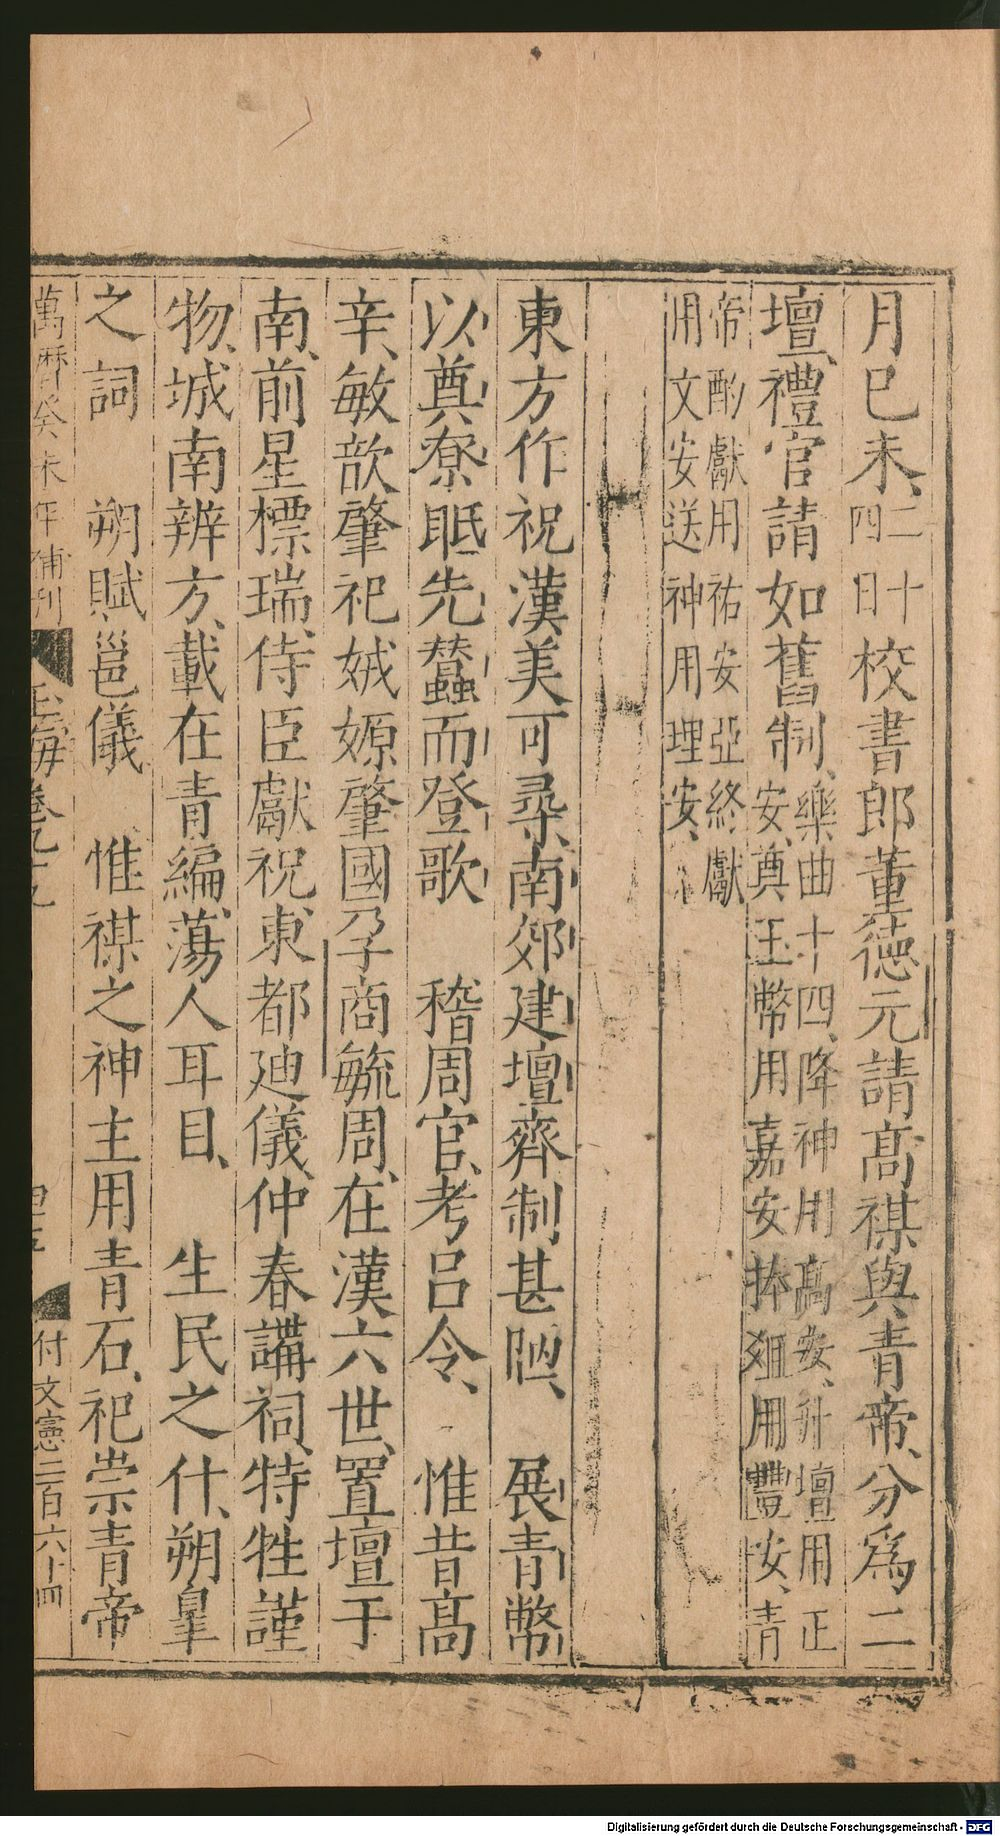 月己未二十四日校書郎董德元請高禖與青帝分爲二
壇禮官請如舊制樂曲十四降神用高安升壇用正安奠玉幣用嘉安捧俎用豐安青
帝酌獻用祐安亞終獻用文安送神用理安
東方作祝漢美可尋南郊建壇齊制甚陋　展青幣
以奠寮眂先蠶而登歌　稽周官考呂令　惟昔高
辛敏歆肇祀娀嫄肇國孕商毓周在漢六世置壇于
南前星標瑞侍臣獻祝東都廸儀仲春講祠特牲謹
物城南辨方載在青編蕩人耳目　生民之什朔皐
之詞　朔賦邕儀　惟禖之神主用青石祀崇青帝
萬曆癸未年補刊　玉海卷九十九　四十五　付文憲二百六十四
Digitalisierung gefördert durch die Deutsche Forschungsgemeinschaft - DFG